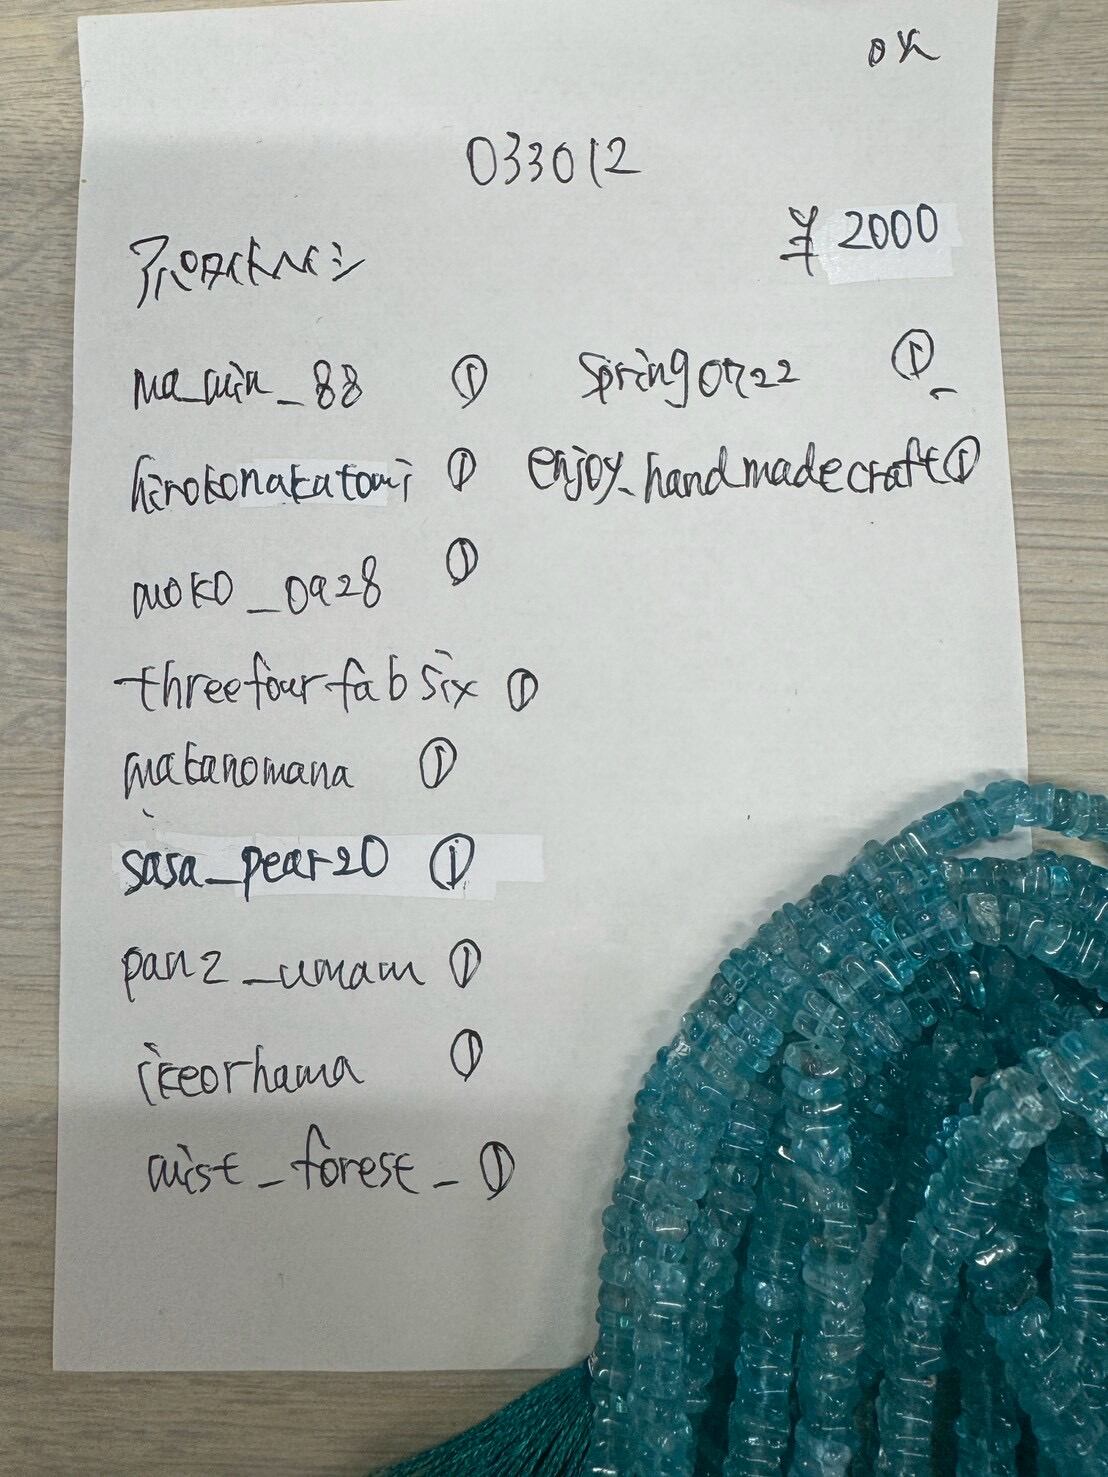 OK
033012
¥ 2000
アパタイトヘイシ
ma_min_88 ①
hirokonakatomi ①
moko_0928 ①
threefourfabsix ①
matanomana ①
sasa_pear20 ①
pan2_umam ①
ikeorhama ①
mist_forest_ ①
Spring0722 ①
enjoy_handmadecraft ①